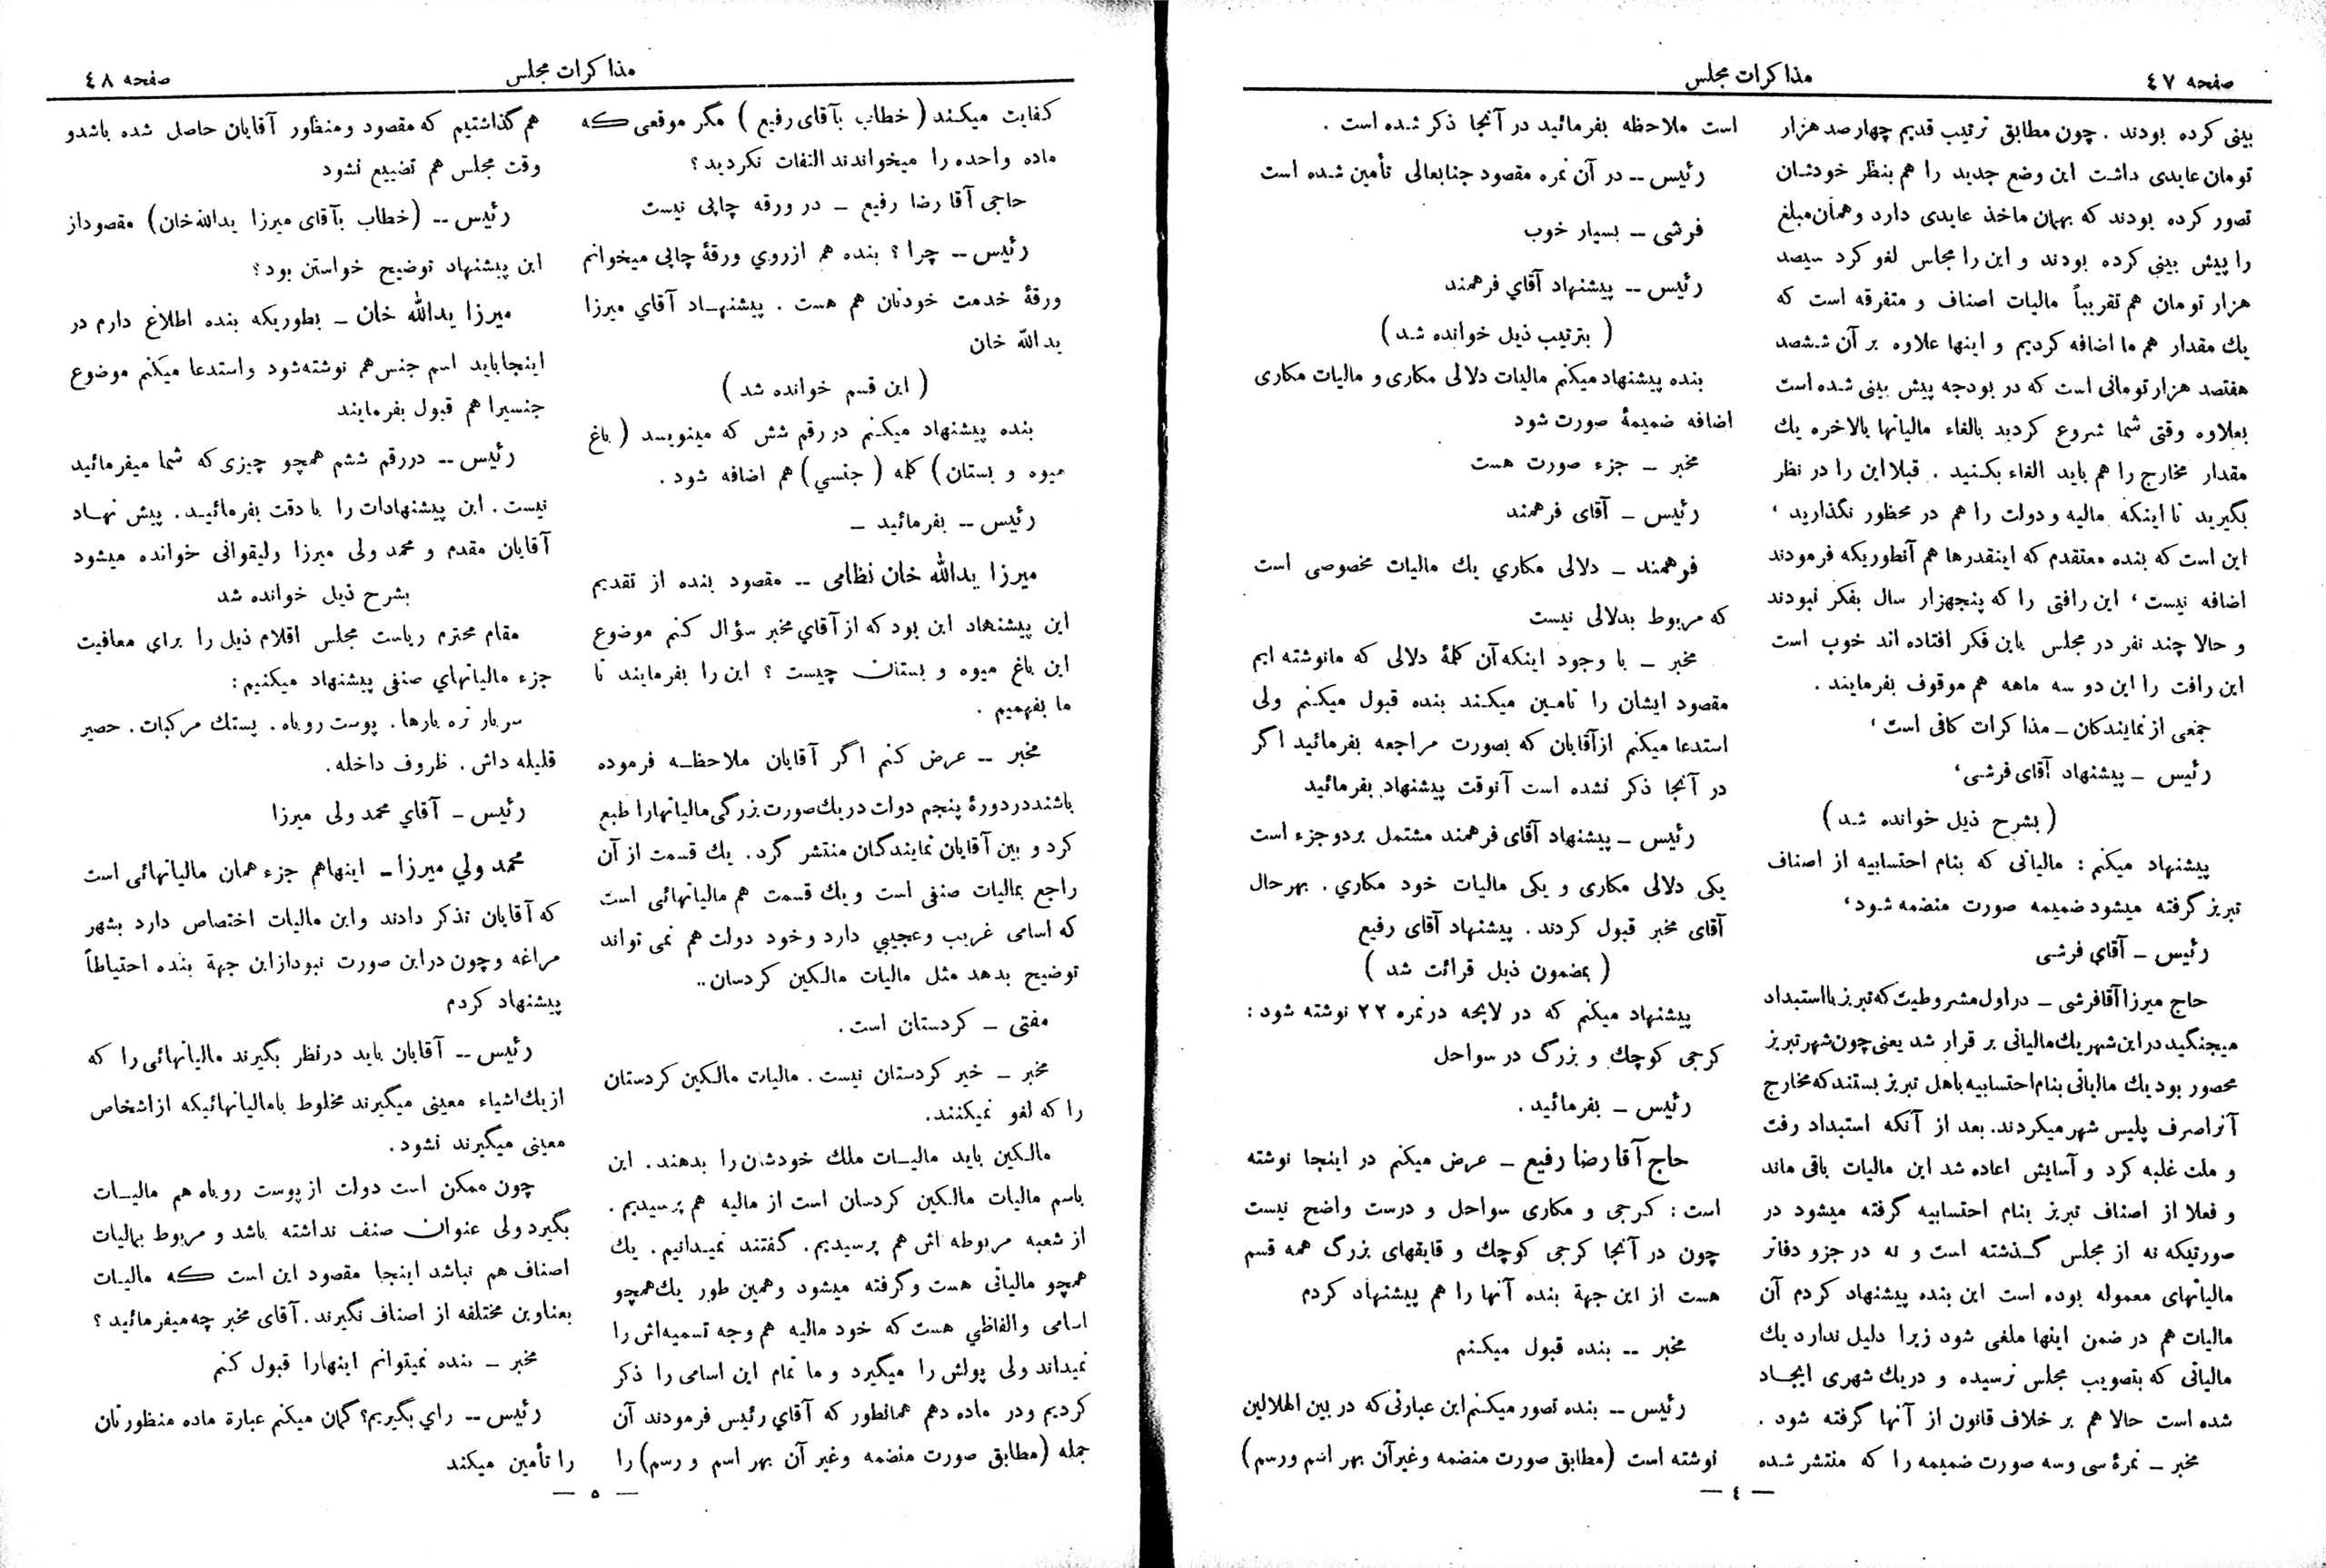 صفحه ٤٧
مذاکرات مجلس
بینی کرده بودند . چون مطابق ترتیب قدیم چهار صد هزار
تومان عایدی داشت این وضع جدید را هم بنظر خودشان
تصور کرده بودند که بهمان ماخذ عایدی دارد و همان مبلغ
را پیش بینی کرده بودند و این را مجلس لغو کرد سیصد
هزار تومان هم تقریباً مالیات اصناف و متفرقه است که
یك مقدار هم ما اضافه کردیم و اینها علاوه بر آن ششصد
هفتصد هزار تومانی است که در بودجه پیش بینی شده است
بعلاوه وقتی شما شروع کردید بالغاء مالیاتها بالاخره یك
مقدار مخارج را هم باید الغاء بکنید . قبلا این را در نظر
بگیرید تا اینکه مالیه و دولت را هم در محظور نگذارید ،
این است که بنده معتقدم که اینقدرها هم آنطوریکه فرمودند
اضافه نیست ، این رافتی را که پنجهزار سال بفکر نبودند
و حالا چند نفر در مجلس باین فکر افتاده اند خوب است
این رافت را این دو سه ماهه هم موقوف بفرمایند .
جمعی از نمایندکان ــ مذاکرات کافی است ،
رئیس ــ پیشنهاد آقای فرشی ،
( بشرح ذیل خوانده شد )
پیشنهاد میکنم : مالیاتی که بنام احتسابیه از اصناف
تبریز گرفته میشود ضمیمه صورت منضمه شود ،
رئیس ــ آقاي فرشی
حاج میرزا آقا فرشی ــ در اول مشروطیت که تبریز با استبداد
میجنگید در این شهر یك مالیاتی بر قرار شد یعنی چون شهر تبریز
محصور بود یك مالیاتی بنام احتسابیه باهل تبریز بستند که مخارج
آنرا صرف پلیس شهر میکردند. بعد از آنکه استبداد رفت
و ملت غلبه کرد و آسایش اعاده شد این مالیات باقی ماند
و فعلا از اصناف تبریز بنام احتسابیه گرفته میشود در
صورتیکه نه از مجلس گذشته است و نه در جزو دفاتر
مالیاتهای معموله بوده است این بنده پیشنهاد کردم آن
مالیات هم در ضمن اینها ملغی شود زیرا دلیل ندارد یك
مالیاتی که بتصویب مجلس نرسیده و در یك شهری ایجاد
شده است حالا هم بر خلاف قانون از آنها گرفته شود .
مخبر ــ نمرهٔ سی وسه صورت ضمیمه را که منتشر شده
است ملاحظه بفرمائید در آنجا ذکر شده است .
رئیس ــ در آن نمره مقصود جنابعالی تأمین شده است
فرشی ــ بسیار خوب
رئیس ــ پیشنهاد آقاي فرهمند
( بترتیب ذیل خوانده شد )
بنده پیشنهاد میکنم مالیات دلالی مکاری و مالیات مکاری
اضافه ضمیمهٔ صورت شود
مخبر ــ جزء صورت هست
رئیس ــ آقای فرهمند
فرهمند ــ دلالی مکاري یك مالیات مخصوصی است
که مربوط بدلالی نیست
مخبر ــ با وجود اینکه آن کلمهٔ دلالی که ما نوشته ایم
مقصود ایشان را تامین میکند بنده قبول میکنم ولی
استدعا میکنم از آقایان که بصورت مراجعه بفرمائید اگر
در آنجا ذکر نشده است آنوقت پیشنهاد بفرمائید
رئیس ــ پیشنهاد آقای فرهمند مشتمل بر دو جزء است
یکی دلالی مکاری و یکی مالیات خود مکاري . بهر حال
آقای مخبر قبول کردند . پیشنهاد آقای رفیع
( بمضمون ذیل قرائت شد )
پیشنهاد میکنم که در لایحه در نمره ۲۲ نوشته شود :
کرجی کوچك و بزرگ در سواحل
رئیس ــ بفرمائید .
حاج آقا رضا رفیع ــ عرض میکنم در اینجا نوشته
است : کرجی و مکاری سواحل و درست واضح نیست
چون در آنجا کرجی کوچك و قایقهای بزرگ همه قسم
هست از این جهة بنده آنها را هم پیشنهاد کردم
مخبر ــ بنده قبول میکنم
رئیس ــ بنده تصور میکنم این عبارتی که در بین الهلالین
نوشته است (مطابق صورت منضمه وغیر آن بهر اسم ورسم)
ــ ٤ ــ
مذاکرات مجلس
صفحه ٤٨
کفایت میکند ( خطاب بآقای رفیع ) مگر موقعی که
ماده واحده را میخواندند التفات نکردید ؟
حاجی آقا رضا رفیع ــ در ورقه چاپی نیست
رئیس ــ چرا ؟ بنده هم از روي ورقهٔ چاپی میخوانم
ورقهٔ خدمت خودتان هم هست . پیشنهاد آقاي میرزا
یدالله خان
( این قسم خوانده شد )
بنده پیشنهاد میکنم در رقم شش که مینویسد ( باغ
میوه و بستان ) کلمه ( جنسي ) هم اضافه شود .
رئیس ــ بفرمائید ــ
میرزا یدالله خان نظامی ــ مقصود بنده از تقدیم
این پیشنهاد این بود که از آقاي مخبر سؤال کنم موضوع
این باغ میوه و بستان چیست ؟ این را بفرمایند تا
ما بفهمیم .
مخبر ــ عرض کنم اگر آقایان ملاحظه فرموده
باشند در دورهٔ پنجم دولت در یك صورت بزرگی مالیاتها را طبع
کرد و بین آقایان نمایندگان منتشر کرد . یك قسمت از آن
راجع بمالیات صنفی است و یك قسمت هم مالیاتهائی است
که اسامی غریب وعجیبي دارد وخود دولت هم نمی تواند
توضیح بدهد مثل مالیات مالکین کردسان ..
مفتی ــ کردستان است .
مخبر ــ خیر کردستان نیست . مالیات مالکین کردستان
را که لغو نمیکنند.
مالکین باید مالیات ملك خودشان را بدهند . این
باسم مالیات مالکین کردسان است از مالیه هم پرسیدیم .
از شعبه مربوطه اش هم پرسیدیم . گفتند نمیدانیم . یك
همچو مالیاتی هست وگرفته میشود وهمین طور یك همچو
اسامی والفاظي هست که خود مالیه هم وجه تسمیه اش را
نمیداند ولی پولش را میگیرد و ما تمام این اسامی را ذکر
کردیم ودر ماده دهم همانطور که آقاي رئیس فرمودند آن
جمله (مطابق صورت منضمه وغیر آن بهر اسم و رسم) را
هم گذاشتیم که مقصود ومنظور آقایان حاصل شده باشدو
وقت مجلس هم تضییع نشود
رئیس ــ (خطاب بآقای میرزا یدالله خان) مقصود از
این پیشنهاد توضیح خواستن بود ؟
میرزا یدالله خان ــ بطوریکه بنده اطلاع دارم در
اینجا باید اسم جنس هم نوشته شود واستدعا میکنم موضوع
جنسیرا هم قبول بفرمایند
رئیس ــ در رقم ششم همچو چیزی که شما میفرمائید
نیست . این پیشنهادات را با دقت بفرمائید . پیش نهاد
آقایان مقدم و محمد ولی میرزا ولیقوانی خوانده میشود
بشرح ذیل خوانده شد
مقام محترم ریاست مجلس اقلام ذیل را براي معافیت
جزء مالیاتهاي صنفی پیشنهاد میکنیم :
سر بار تره بارها . پوست روباه . پستك مرکبات . حصیر
قلیله داش . ظروف داخله .
رئیس ــ آقاي محمد ولی میرزا
محمد ولي میرزا ــ اینهاهم جزء همان مالیاتهائی است
که آقایان تذکر دادند واین مالیات اختصاص دارد بشهر
مراغه وچون در این صورت نبود از این جهة بنده احتیاطاً
پیشنهاد کردم
رئیس ــ آقایان باید در نظر بگیرند مالیاتهائی را که
از یك اشیاء معینی میگیرند مخلوط بامالیاتهائیکه از اشخاص
معینی میگیرند نشود .
چون ممکن است دولت از پوست روباه هم مالیات
بگیرد ولی عنوان صنف نداشته باشد و مربوط بمالیات
اصناف هم نباشد اینجا مقصود این است که مالیات
بعناوین مختلفه از اصناف نگیرند . آقای مخبر چه میفرمائید ؟
مخبر ــ بنده نمیتوانم اینهارا قبول کنم
رئیس ــ راي بگیریم؟ گمان میکنم عبارة ماده منظورتان
را تأمین میکند
ــ ٥ ــ